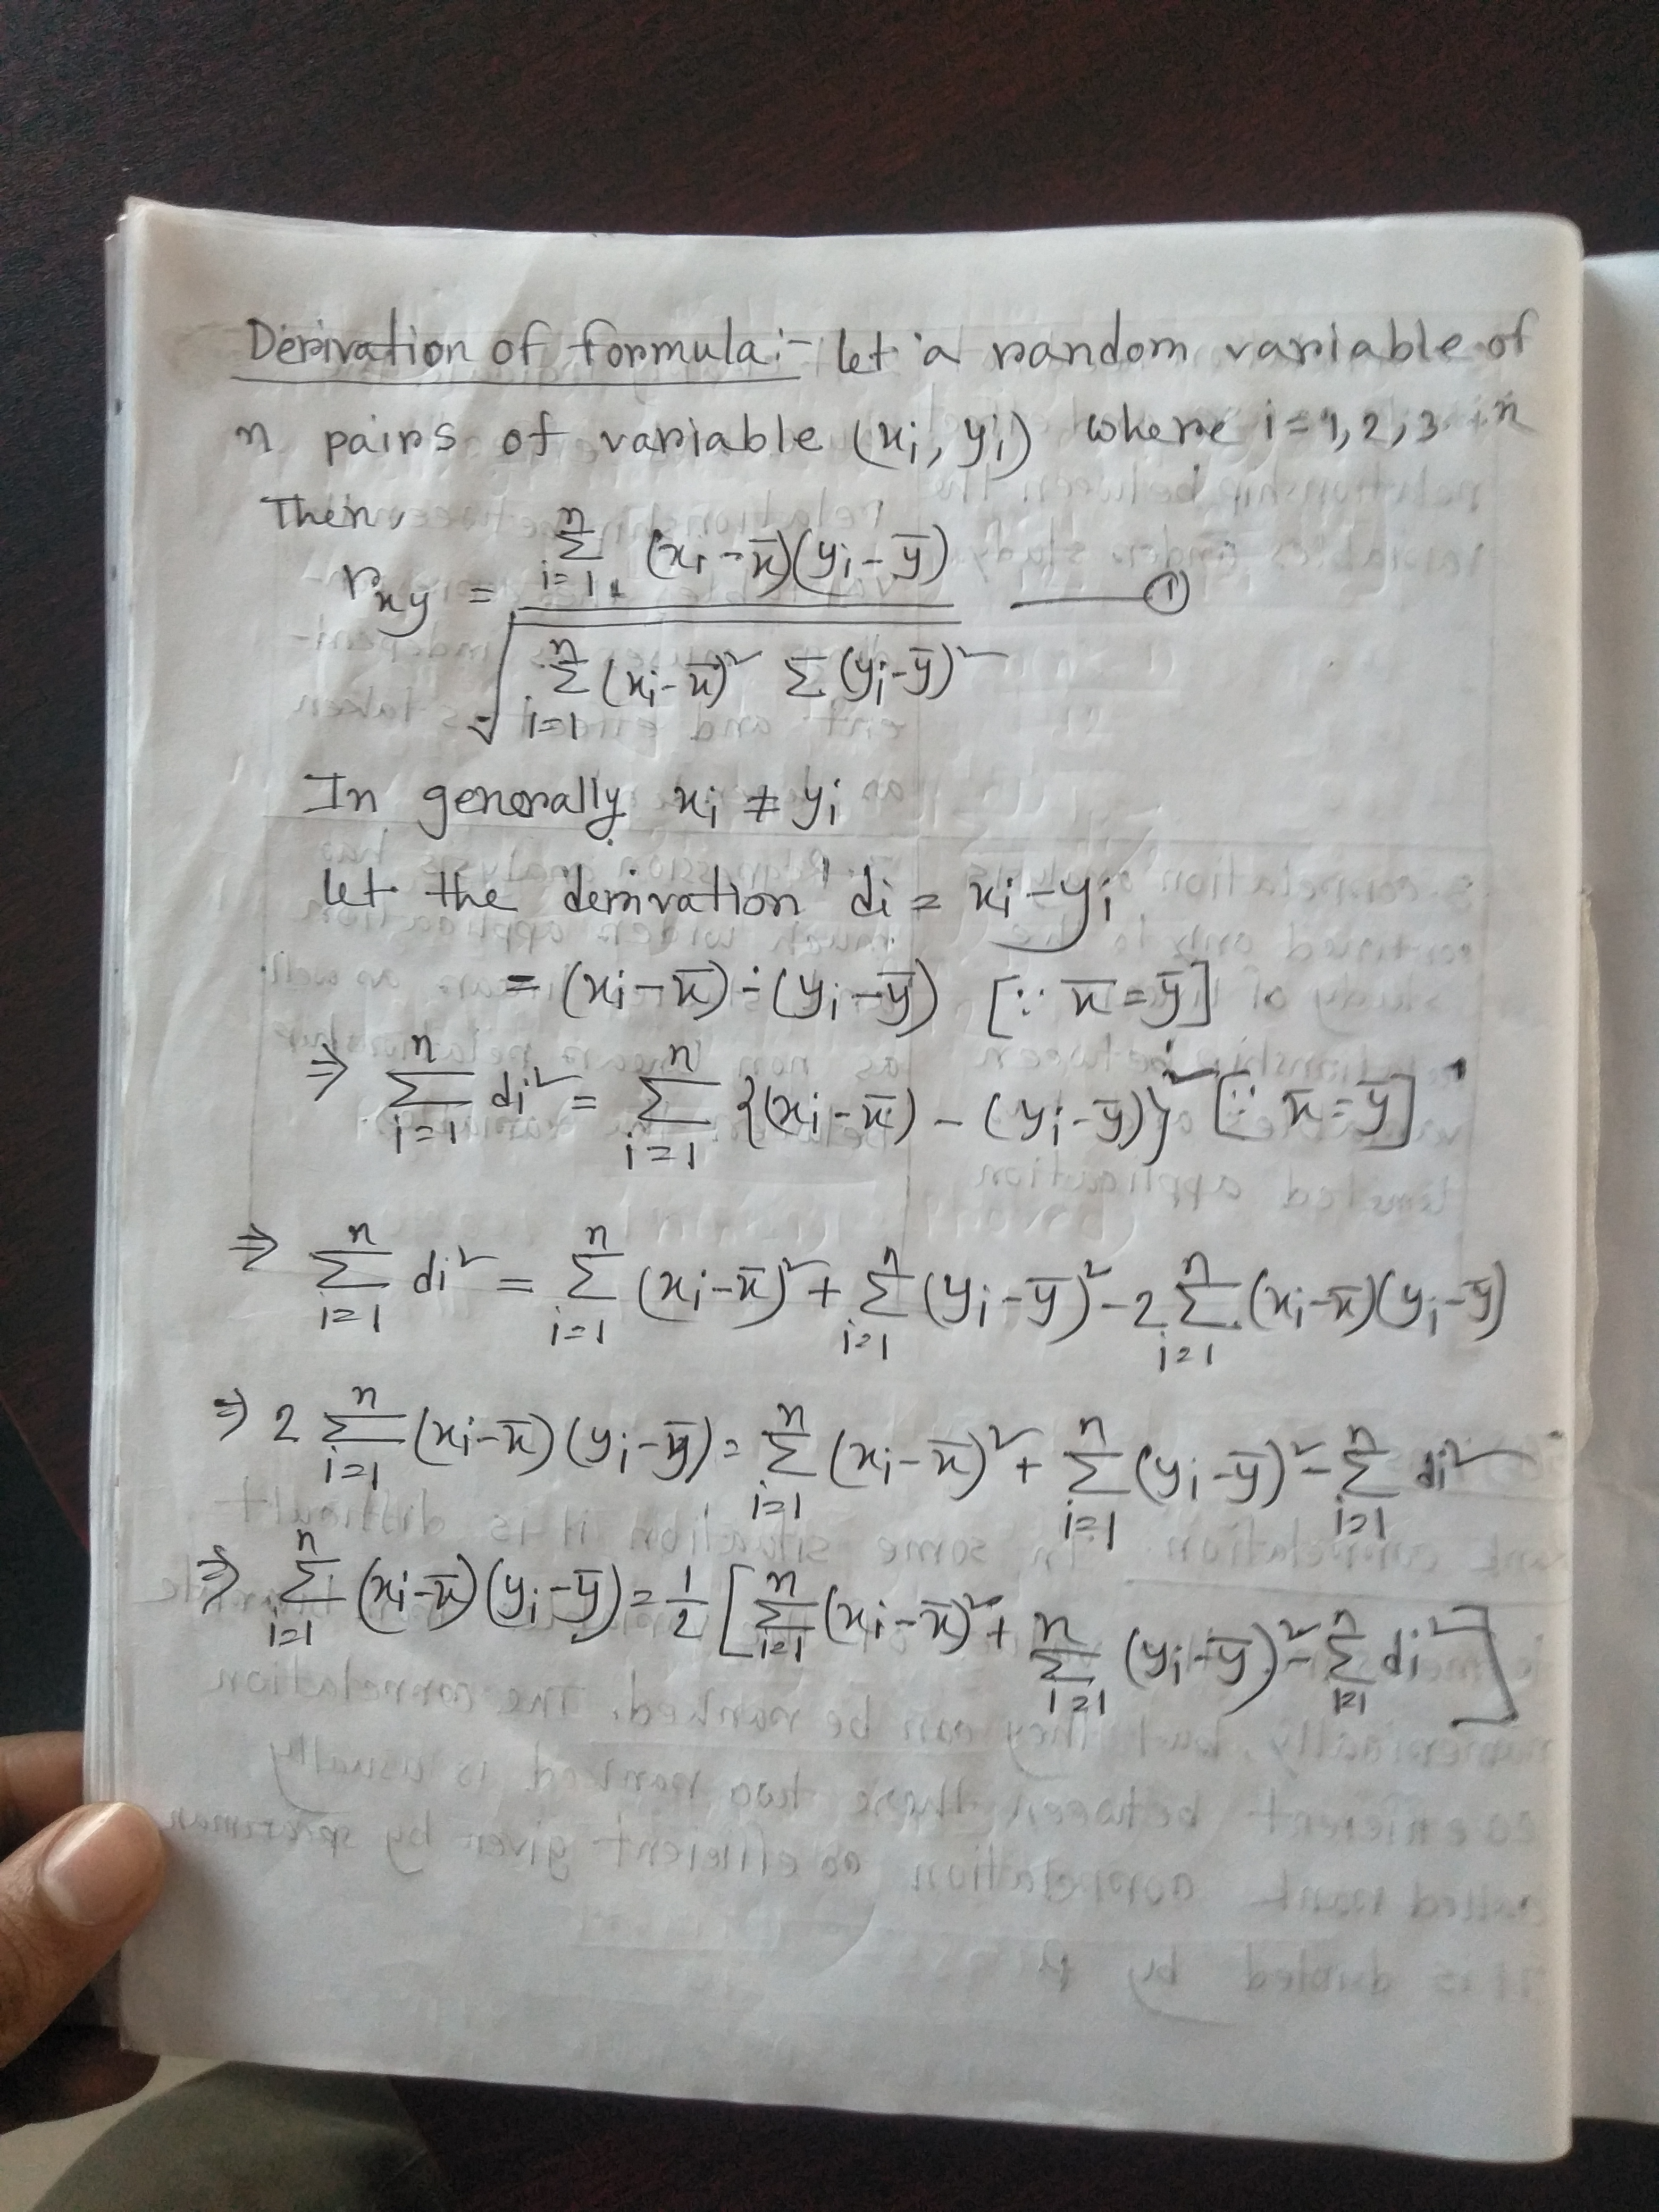 Derivation of formula:- let a random variable of
n pairs of variable (xi, yi) where i=1,2,3...n
Then,
r_xy = Σ_{i=1}^{n} (xi - x̄)(yi - ȳ) / √(Σ_{i=1}^{n} (xi - x̄)² Σ (yi - ȳ)²) ——— ①
In generally xi ≠ yi
let the derivation di = xi - yi
= (xi - x̄) - (yi - ȳ) [∵ x̄ = ȳ]
⇒ Σ_{i=1}^{n} di² = Σ_{i=1}^{n} {(xi - x̄) - (yi - ȳ)}² [∵ x̄ = ȳ]
⇒ Σ_{i=1}^{n} di² = Σ_{i=1}^{n} (xi - x̄)² + Σ_{i=1}^{n} (yi - ȳ)² - 2 Σ_{i=1}^{n} (xi - x̄)(yi - ȳ)
⇒ 2 Σ_{i=1}^{n} (xi - x̄)(yi - ȳ) = Σ_{i=1}^{n} (xi - x̄)² + Σ_{i=1}^{n} (yi - ȳ)² - Σ_{i=1}^{n} di²
⇒ Σ_{i=1}^{n} (xi - x̄)(yi - ȳ) = 1/2 [Σ_{i=1}^{n} (xi - x̄)² + Σ_{i=1}^{n} (yi - ȳ)² - Σ_{i=1}^{n} di²]